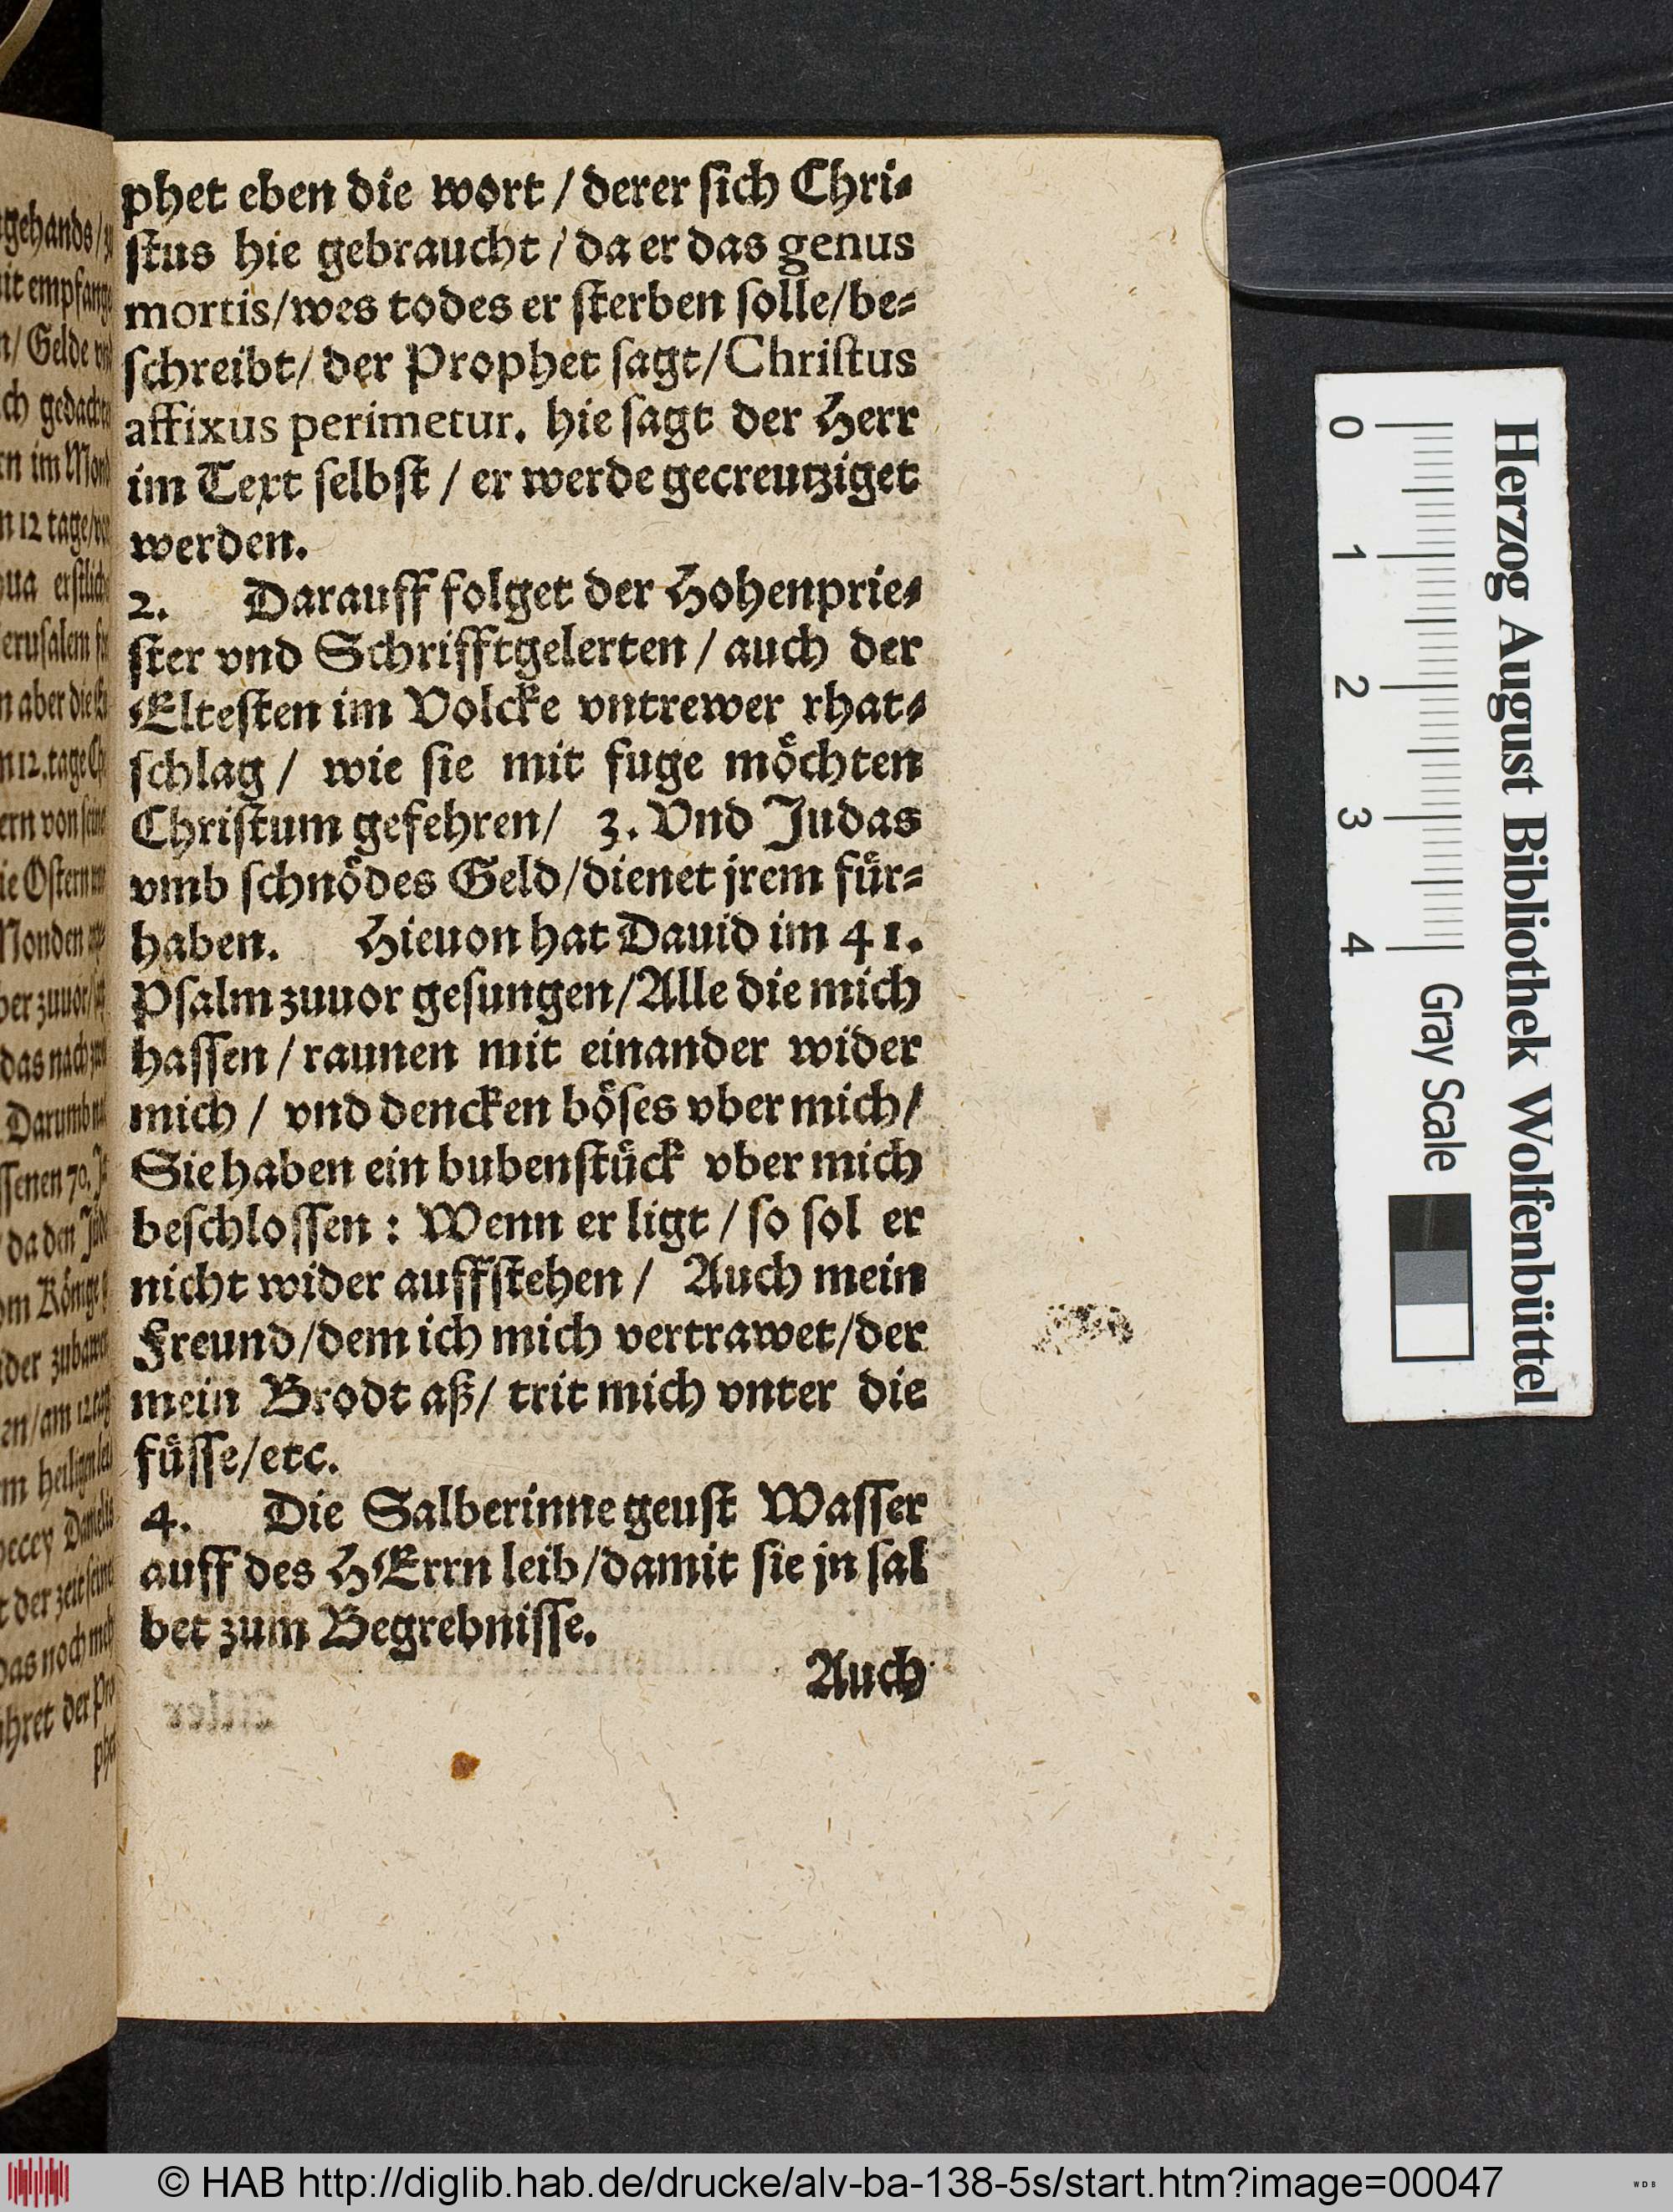 phet eben die wort / derer sich Chri-
stus hie gebraucht / da er das genus
mortis/wes todes er sterben solle/be-
schreibt/ der Prophet sagt/Christus
affixus perimetur. hie sagt der Herr
im Text selbst / er werde gecreutziget
werden.
2. Darauff folget der Hohenprie-
ster vnd Schrifftgelerten / auch der
Eltesten im Volcke vntrewer rhat-
schlag / wie sie mit fuge möchten
Christum gefehren/ 3. Vnd Judas
vmb schnödes Geld/dienet jrem für-
haben. Hieuon hat Dauid im 41.
Psalm zuuor gesungen/Alle die mich
hassen / raunen mit einander wider
mich / vnd dencken böses vber mich/
Sie haben ein bubenstück vber mich
beschlossen : Wenn er ligt / so sol er
nicht wider auffstehen / Auch mein
Freund/dem ich mich vertrawet/der
mein Brodt aß/ trit mich vnter die
füsse/etc.
4. Die Salberinne geust Wasser
auff des HErrn leib/damit sie jn sal
bet zum Begrebnisse.
Auch
gehands/
empfang
Gelde
gedacht
im Mond
12 tage
erstlich
aber die
12. tage
von seine
die Ostern
Monden
zuuor
das nach
Darumb
70.
da den
Könige
der zubawe
am 12
der zeit seine
das noch meh
der Pro
phet
Herzog August Bibliothek Wolfenbüttel
0 1 2 3 4 Gray Scale
© HAB http://diglib.hab.de/drucke/alv-ba-138-5s/start.htm?image=00047
WDB